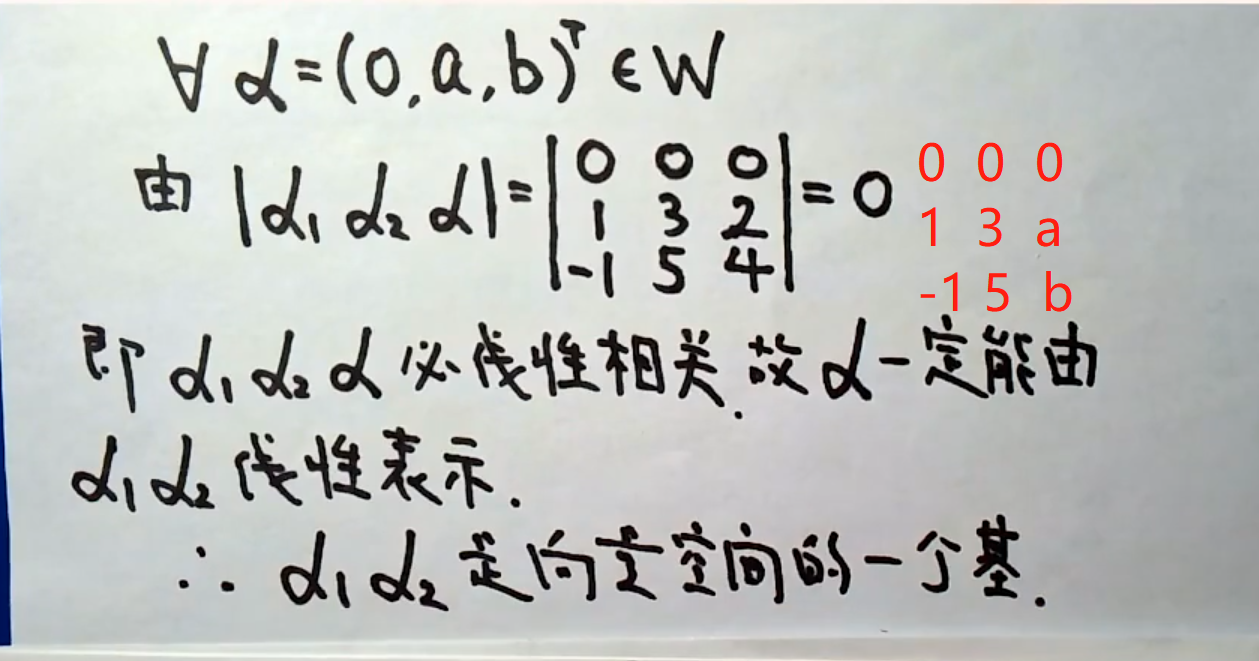 ∀ α=(0,a,b)ᵀ∈W
由 |α₁ α₂ α|=
|0 0 0|
|1 3 2|
|-1 5 4|
=0
0 0 0
1 3 a
-1 5 b
即 α₁ α₂ α 必线性相关.故 α 一定能由
α₁ α₂ 线性表示.
∴ α₁ α₂ 是向量空间的一个基.